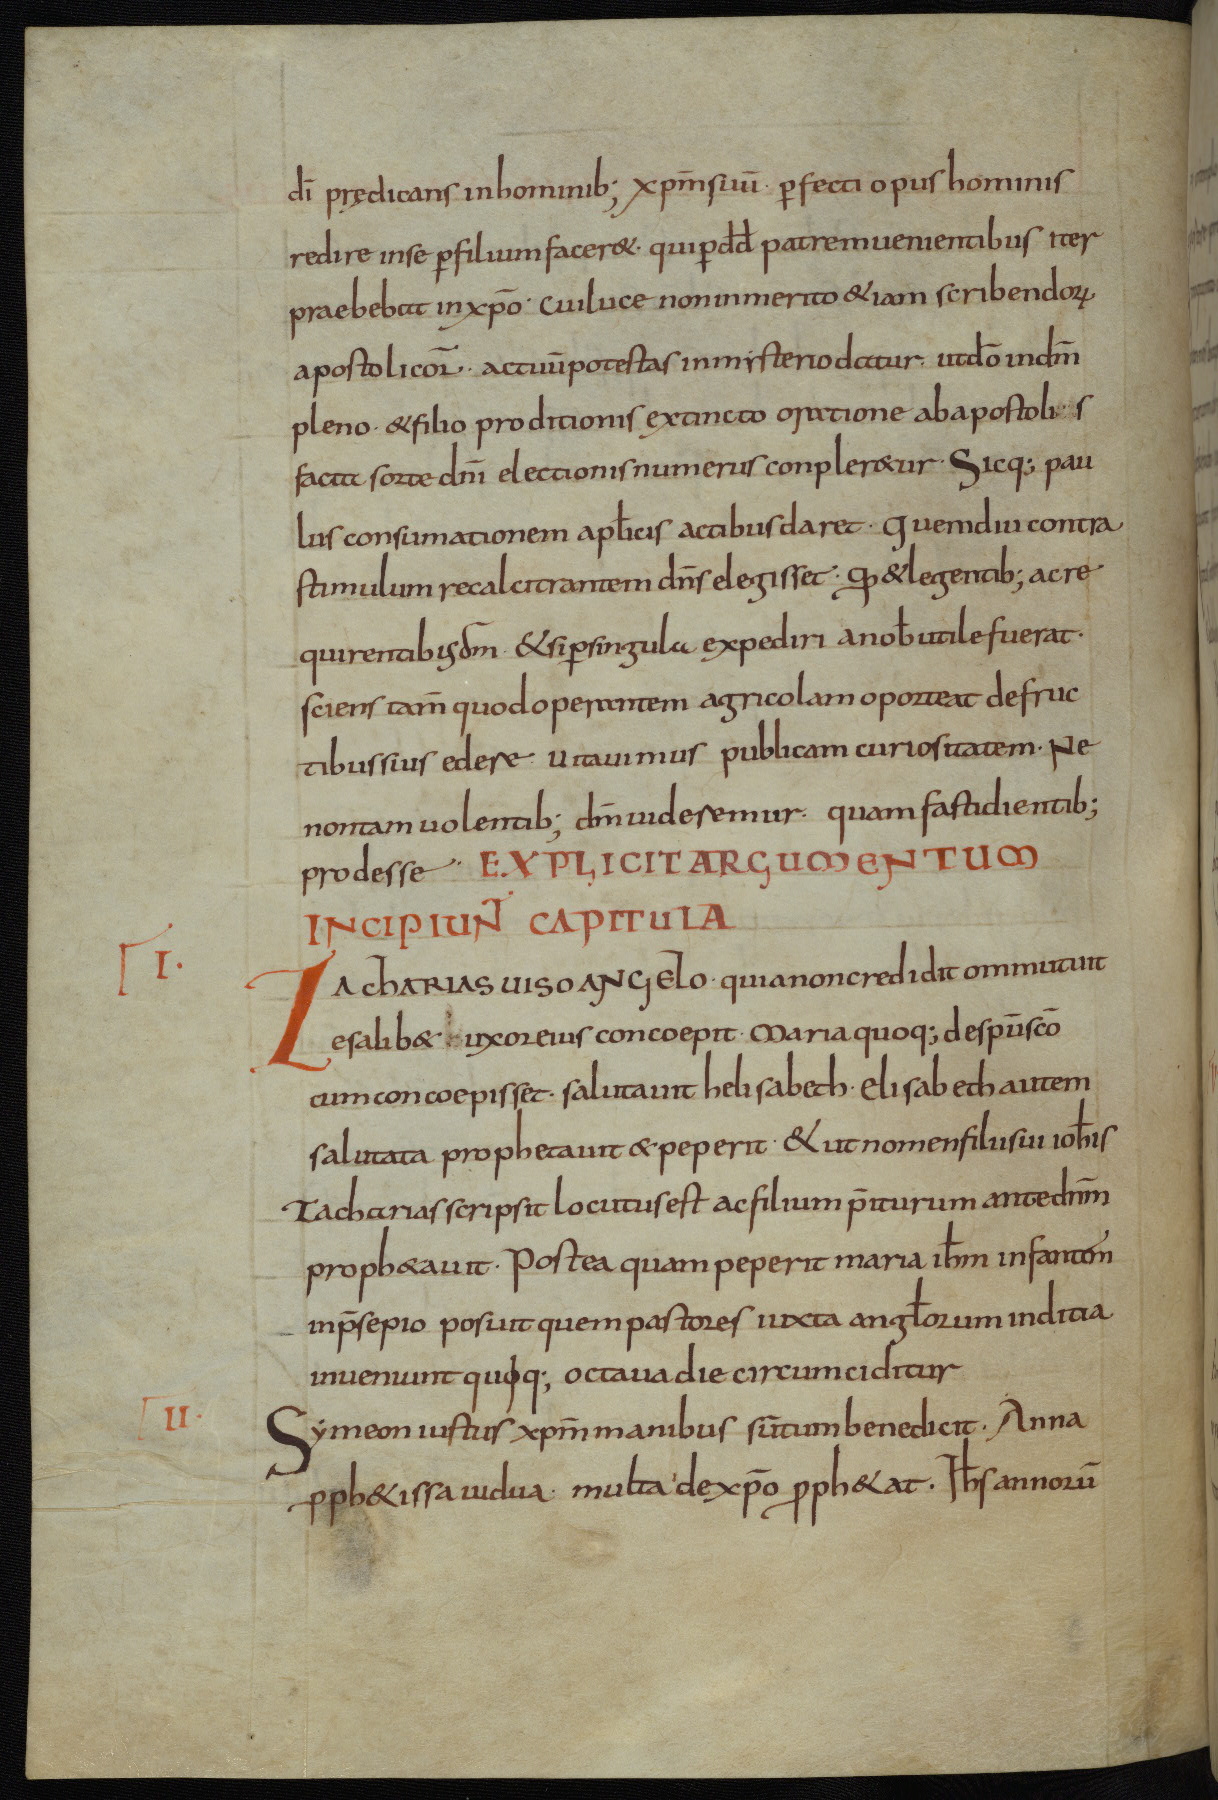 dī prędicans inhominib; xpm̄ suū · ꝑfecti opus hominis
redire inse ꝑfilium facer& · qui ꝑ dd̄ patrem uenientibus iter
praebebat in xp̄o · Cui luce non inmerito &iam scribendoꝝ
apostolicoꝝ · actuū potestas inmysterio datur · ut dō in dm̄
pleno · & filio proditionis extincto oratione ab apostolis
facta sorte dnī electionis numerus conpler&ur · Sicq; pau
lus consumationem apl̄icis actibus daret · Quem diu contra
stimulum recalcitrantem dn̄s elegisset · Qd̄ & legentib; ac re
quirentibus dm̄ · & si ꝑsingula expediri a nob̄ utile fuerat ·
sciens tam̄ quod operantem agricolam oporteat de fruc
tibus suis edere · Uitauimus publicam curiositatem · Ne
non tam uolentib; dm̄ uideremur · quam fastidientib;
prodesse · EXPLICIT ARGUMENTUM
INCIPIUN̄ CAPITULA
I · ZACHARIAS UISO ANGELO · quia non credidit ommutuit
esalib& uxor eius concoepit · Maria quoq; de sp̄u scō
cum concoepisset · salutauit helisabeth · Elisabeth autem
salutata prophetauit & peperit · & ut nomen filii sui ioh̄is
Zacharias scripsit locutus est ac filium p̄iturum ante dn̄m
proph&auit · Postea quam peperit maria ih̄m infantem
in p̄sepio posuit quem pastores iuxta angl̄orum inditia
inueniunt quoq; octaua die circumciditur
II · Symeon iustus xpm̄ manibus sūtum benedicit · Anna
ꝓph&issa uidua · multa de xp̄o ꝓph&at · Ih̄s annorū